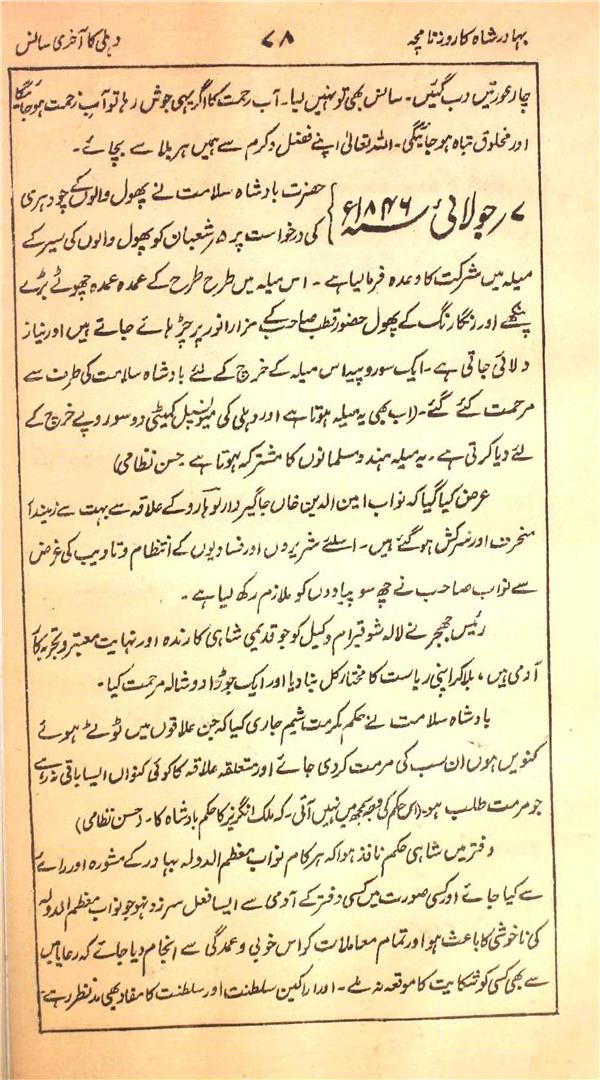 بہادر شاہ کا روزنامچہ ۷۸ دہلی کا آخری سانس
چار عورتیں دب گئیں۔ سانس بھی تو نہیں لیا۔ آب رحمت کا اگر یہی جوش رہا تو آب زحمت ہو جائیگا
اور مخلوق تباہ ہو جائیگی۔ اللہ تعالیٰ اپنے فضل و کرم سے ہمیں ہر بلا سے بچائے۔
۷ جولائی سنہ ۱۸۴۶ء } حضرت بادشاہ سلامت نے پھول والوں کے چودہری
کی درخواست پر ۵ شعبان کو پھول والوں کی سیر کے
میلہ میں شرکت کا وعدہ فرمالیا ہے۔ اس میلہ میں طرح طرح کے عمدہ عمدہ چھوٹے بڑے
پنکھے اور رنگارنگ کے پھول حضور قطب صاحب کے مزار انور پر چڑہائے جاتے ہیں اور نیاز
دلائی جاتی ہے۔ ایک سو روپیہ اس میلہ کے خرچ کے لئے بادشاہ سلامت کی طرف سے
مرحمت کئے گئے۔ (اب بھی یہ میلہ ہوتا ہے اور دہلی کی میونسپل کمیٹی دو سو روپے خرچ کے
لئے دیا کرتی ہے۔ یہ میلہ ہندو مسلمانوں کا مشترکہ ہوتا ہے حسن نظامی)
عرض کیا گیا کہ نواب امین الدین خاں جاگیردار لوہارو کے علاقہ سے بہت سے زمیندار
منحرف اور سرکش ہو گئے ہیں۔ اسلئے شریروں اور فسادیوں کے انتظام و تادیب کی غرض
سے نواب صاحب نے چھ سو پیادوں کو ملازم رکھ لیا ہے۔
رئیس جھجر نے لالہ شوقیرام وکیل کو جو قدیمی شاہی کارندہ اور نہایت معتبر و تجربہ کار
آدمی ہیں، بلاکر اپنی ریاست کا مختار کل بنا دیا اور ایک جوڑا دوشالہ مرحمت کیا۔
بادشاہ سلامت نے حکم مکرمت شیم جاری کیا کہ جن علاقوں میں ٹوٹے ہوئے
کنویں ہوں ان سب کی مرمت کردی جائے اور متعلقہ علاقہ کا کوئی کنواں ایسا باقی نہ رہے
جو مرمت طلب ہو۔ (اس حکم کی وجہ سمجھ میں نہیں آتی۔ کہ ملک انگریز کا حکم بادشاہ کا۔ (حسن نظامی)
دفتر میں شاہی حکم نافذ ہوا کہ ہر کام نواب معظم الدولہ بہادر کے مشورہ اور رائے
سے کیا جائے اور کسی صورت میں کسی دفتر کے آدمی سے ایسا فعل سرزد نہو جو نواب معظم الدولہ
کی ناخوشی کا باعث ہو اور تمام معاملات کو اس خوبی و عمدگی سے انجام دیا جائے کہ رعایا میں
سے بھی کسی کو شکایت کا موقعہ نہ ملے۔ اور اراکین سلطنت اور سلطنت کا مفاد بھی مدنظر رہے